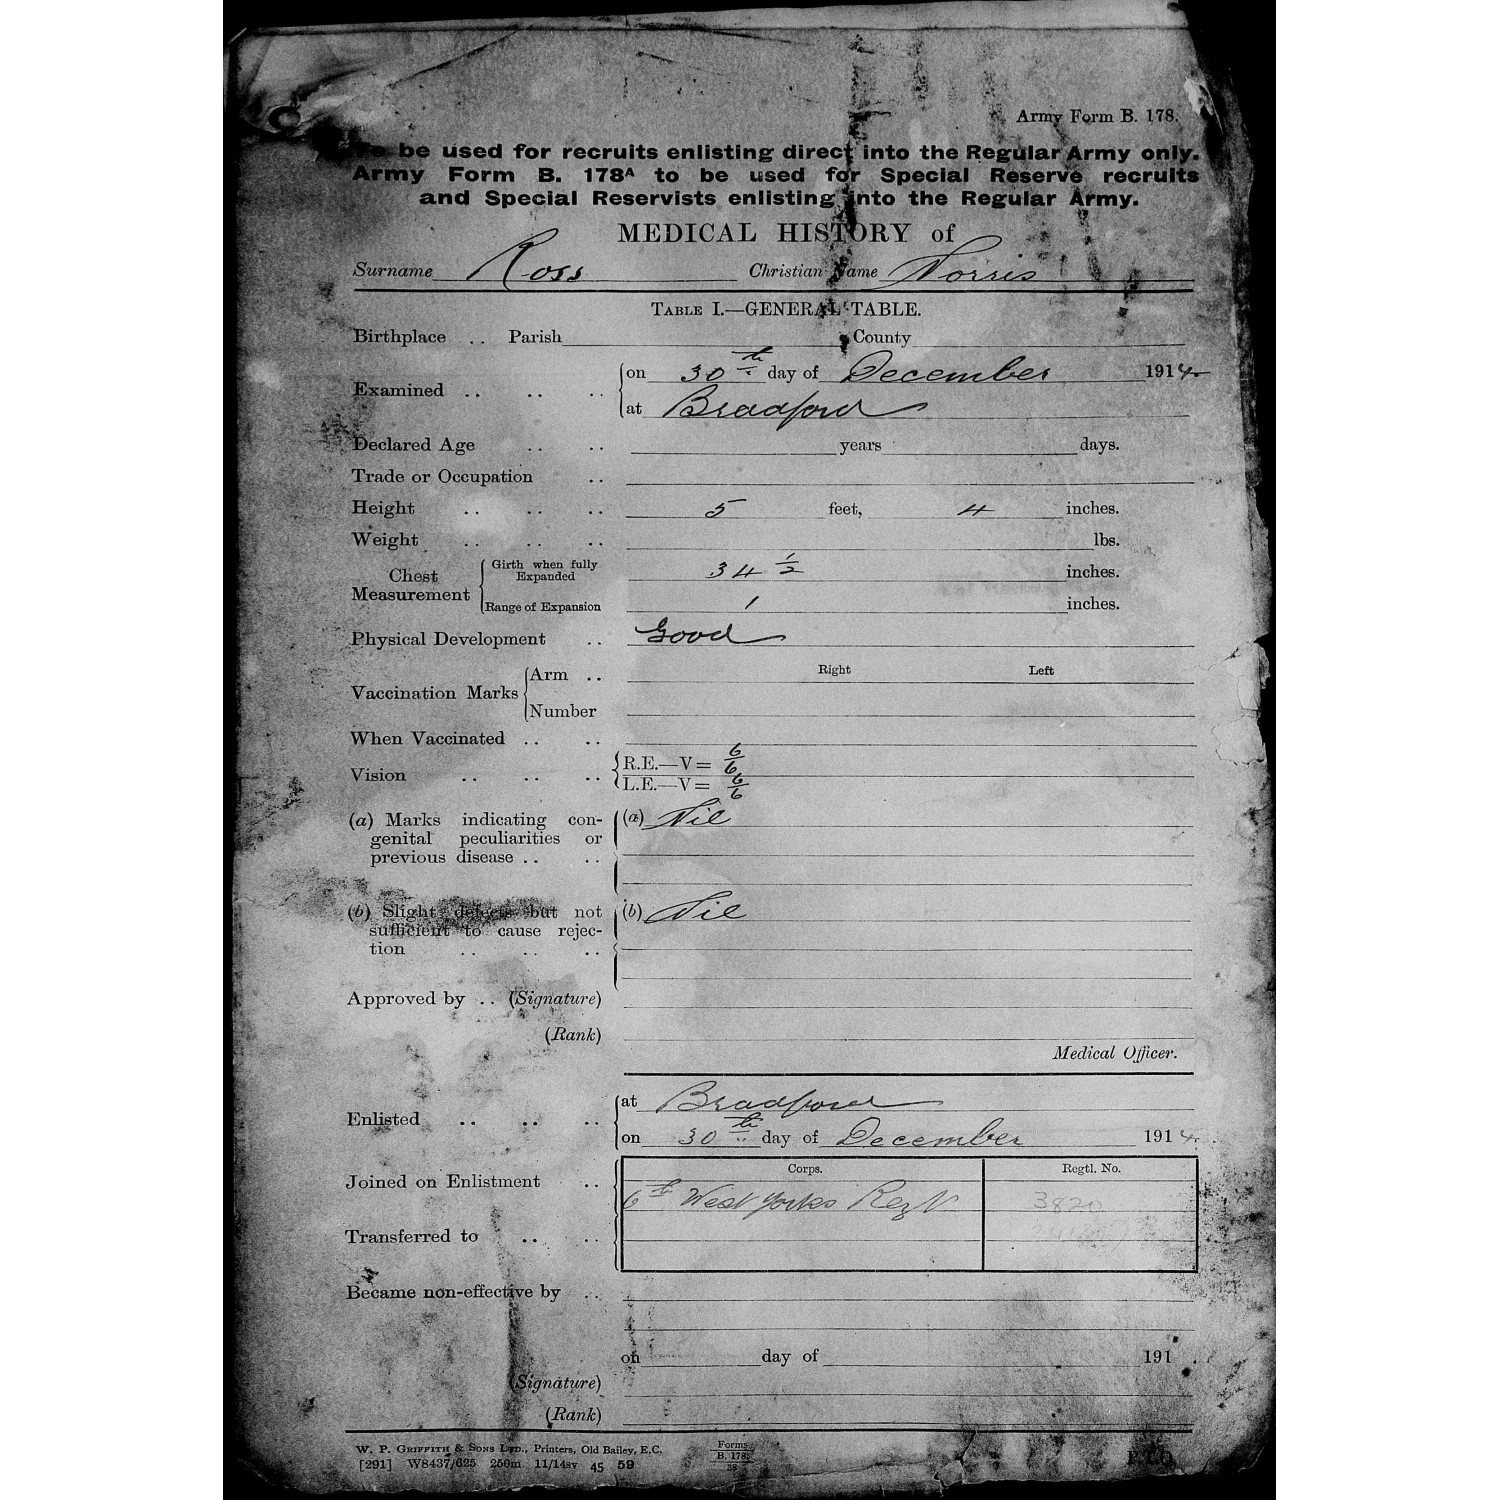 Army Form B. 178.
To be used for recruits enlisting direct into the Regular Army only.
Army Form B. 178A to be used for Special Reserve recruits
and Special Reservists enlisting into the Regular Army.
MEDICAL HISTORY of
Surname Ross Christian Name Norris
TABLE I.—GENERAL TABLE.
Birthplace .. Parish County
Examined .. .. .. on 30th day of December 1914
at Bradford
Declared Age .. .. years days.
Trade or Occupation ..
Height .. .. .. 5 feet, 4 inches.
Weight .. .. .. lbs.
Chest Measurement Girth when fully Expanded 34 1/2 inches.
Range of Expansion 1 inches.
Physical Development .. Good
Right Left
Vaccination Marks Arm ..
Number
When Vaccinated .. ..
Vision .. .. .. R.E.—V= 6/6
L.E.—V= 6/6
(a) Marks indicating con- (a) Nil
genital peculiarities or
previous disease .. ..
(b) Slight defects but not (b) Nil
sufficient to cause rejec-
tion .. .. ..
Approved by .. (Signature)
(Rank)
Medical Officer.
Enlisted .. .. .. at Bradford
on 30th day of December 1914.
Corps. Regtl. No.
Joined on Enlistment .. 6th West Yorks Regt 3820
Transferred to .. ..
Became non-effective by ..
on day of 191 .
(Signature)
(Rank)
W. P. GRIFFITH & SONS LTD., Printers, Old Bailey, E.C.
[291] W8437/625 250m 11/14sv 45 59
Forms
B. 178.
38
P.T.O.